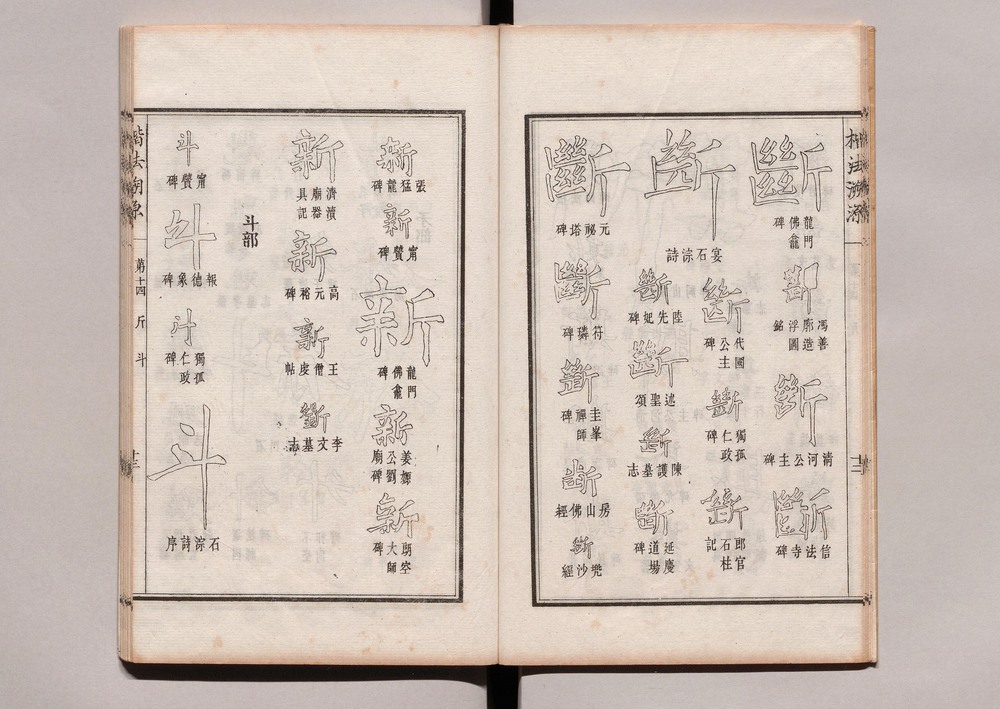 楷法溯源
斷
龍門佛龕碑
斷
馮善廓造浮圖銘
斷
清河公主碑
斷
信法寺碑
斷
宴石淙詩
斷
代國公主碑
斷
獨孤仁政碑
斷
郎官石柱記
斷
陸先妃碑
斷
述聖頌
斷
陳護墓志
斷
延慶道場碑
斷
元祕塔碑
斷
符璘碑
斷
圭峯禪師碑
斷
房山佛經
斷
兜沙經
新
張猛龍碑
新
甯贊碑
新
龍門佛龕碑
新
姜嫄公劉廟碑
新
朗空大師碑
新
濟瀆廟器具記
新
高元裕碑
新
王僧虔帖
李文墓志
斗部
斗
甯贊碑
斗
報德象碑
斗
獨孤仁政碑
斗
石淙詩序
楷法溯源 第十四 斤 斗 十三